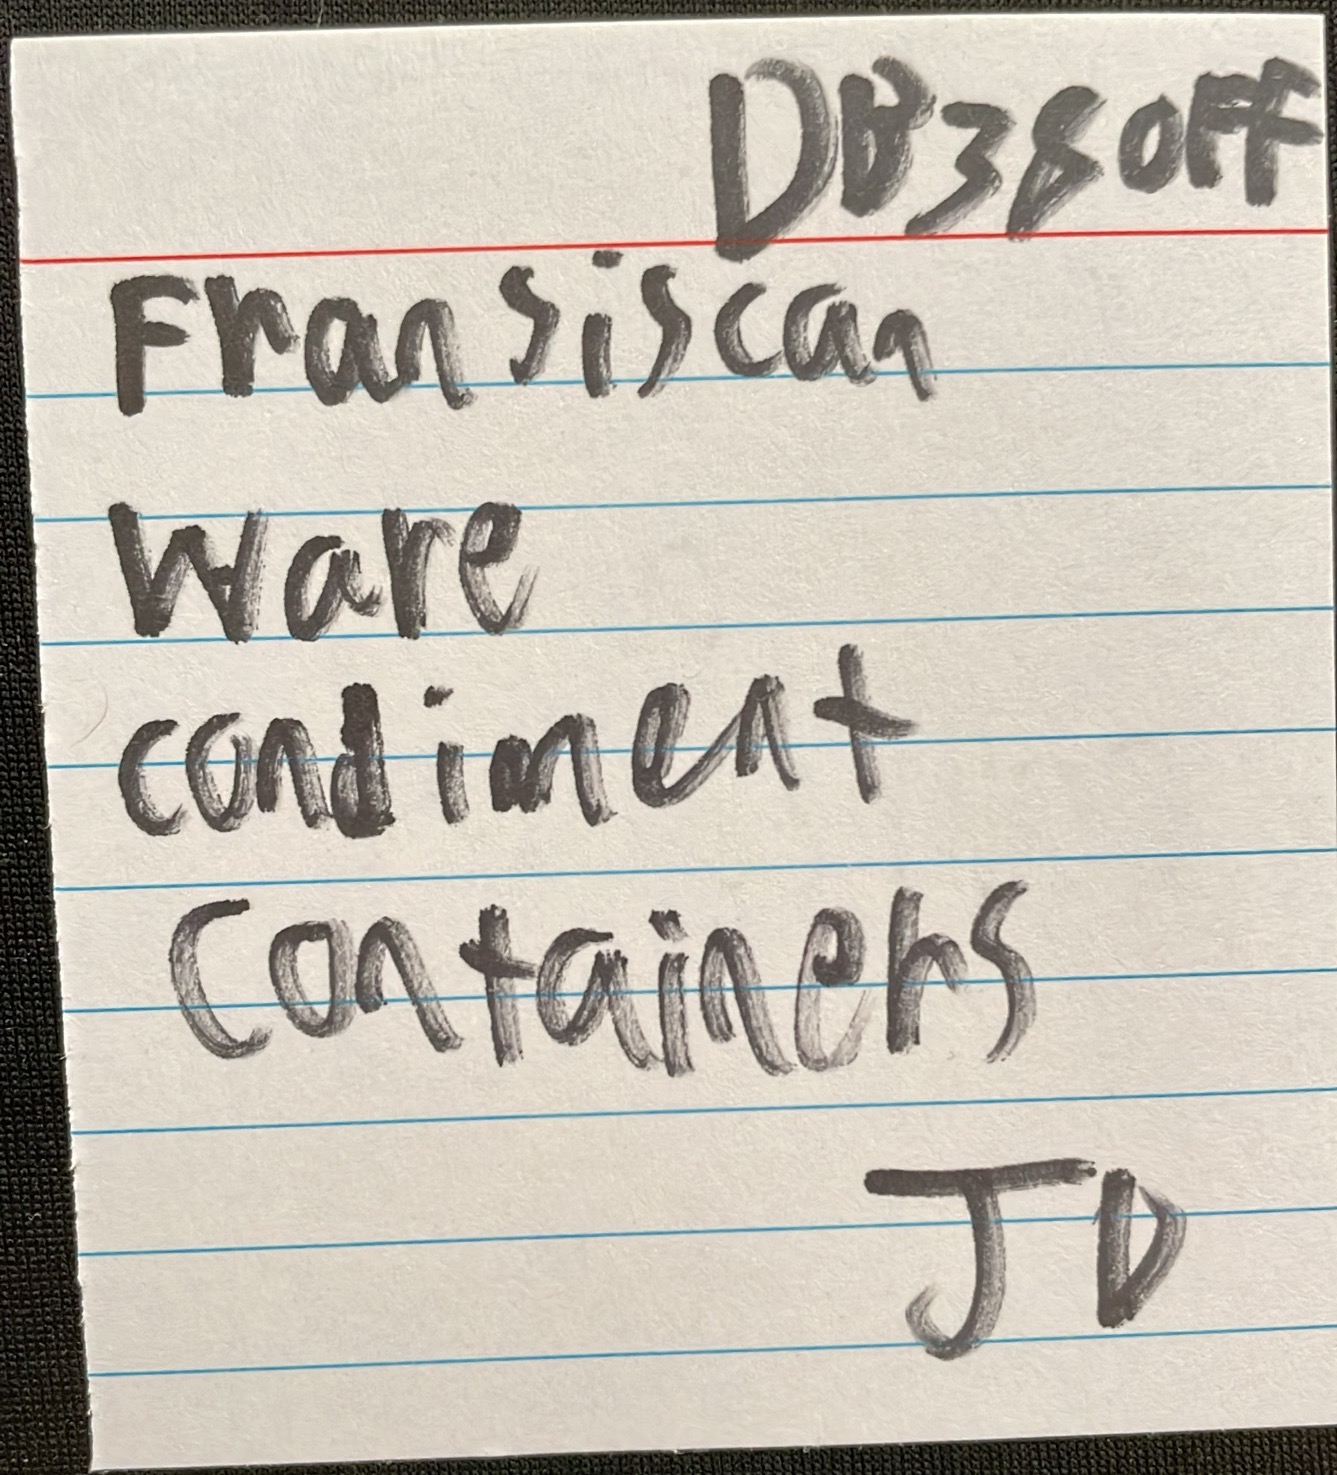 DB38OFF
Fransiscan
Ware
condiment
Containers
JD